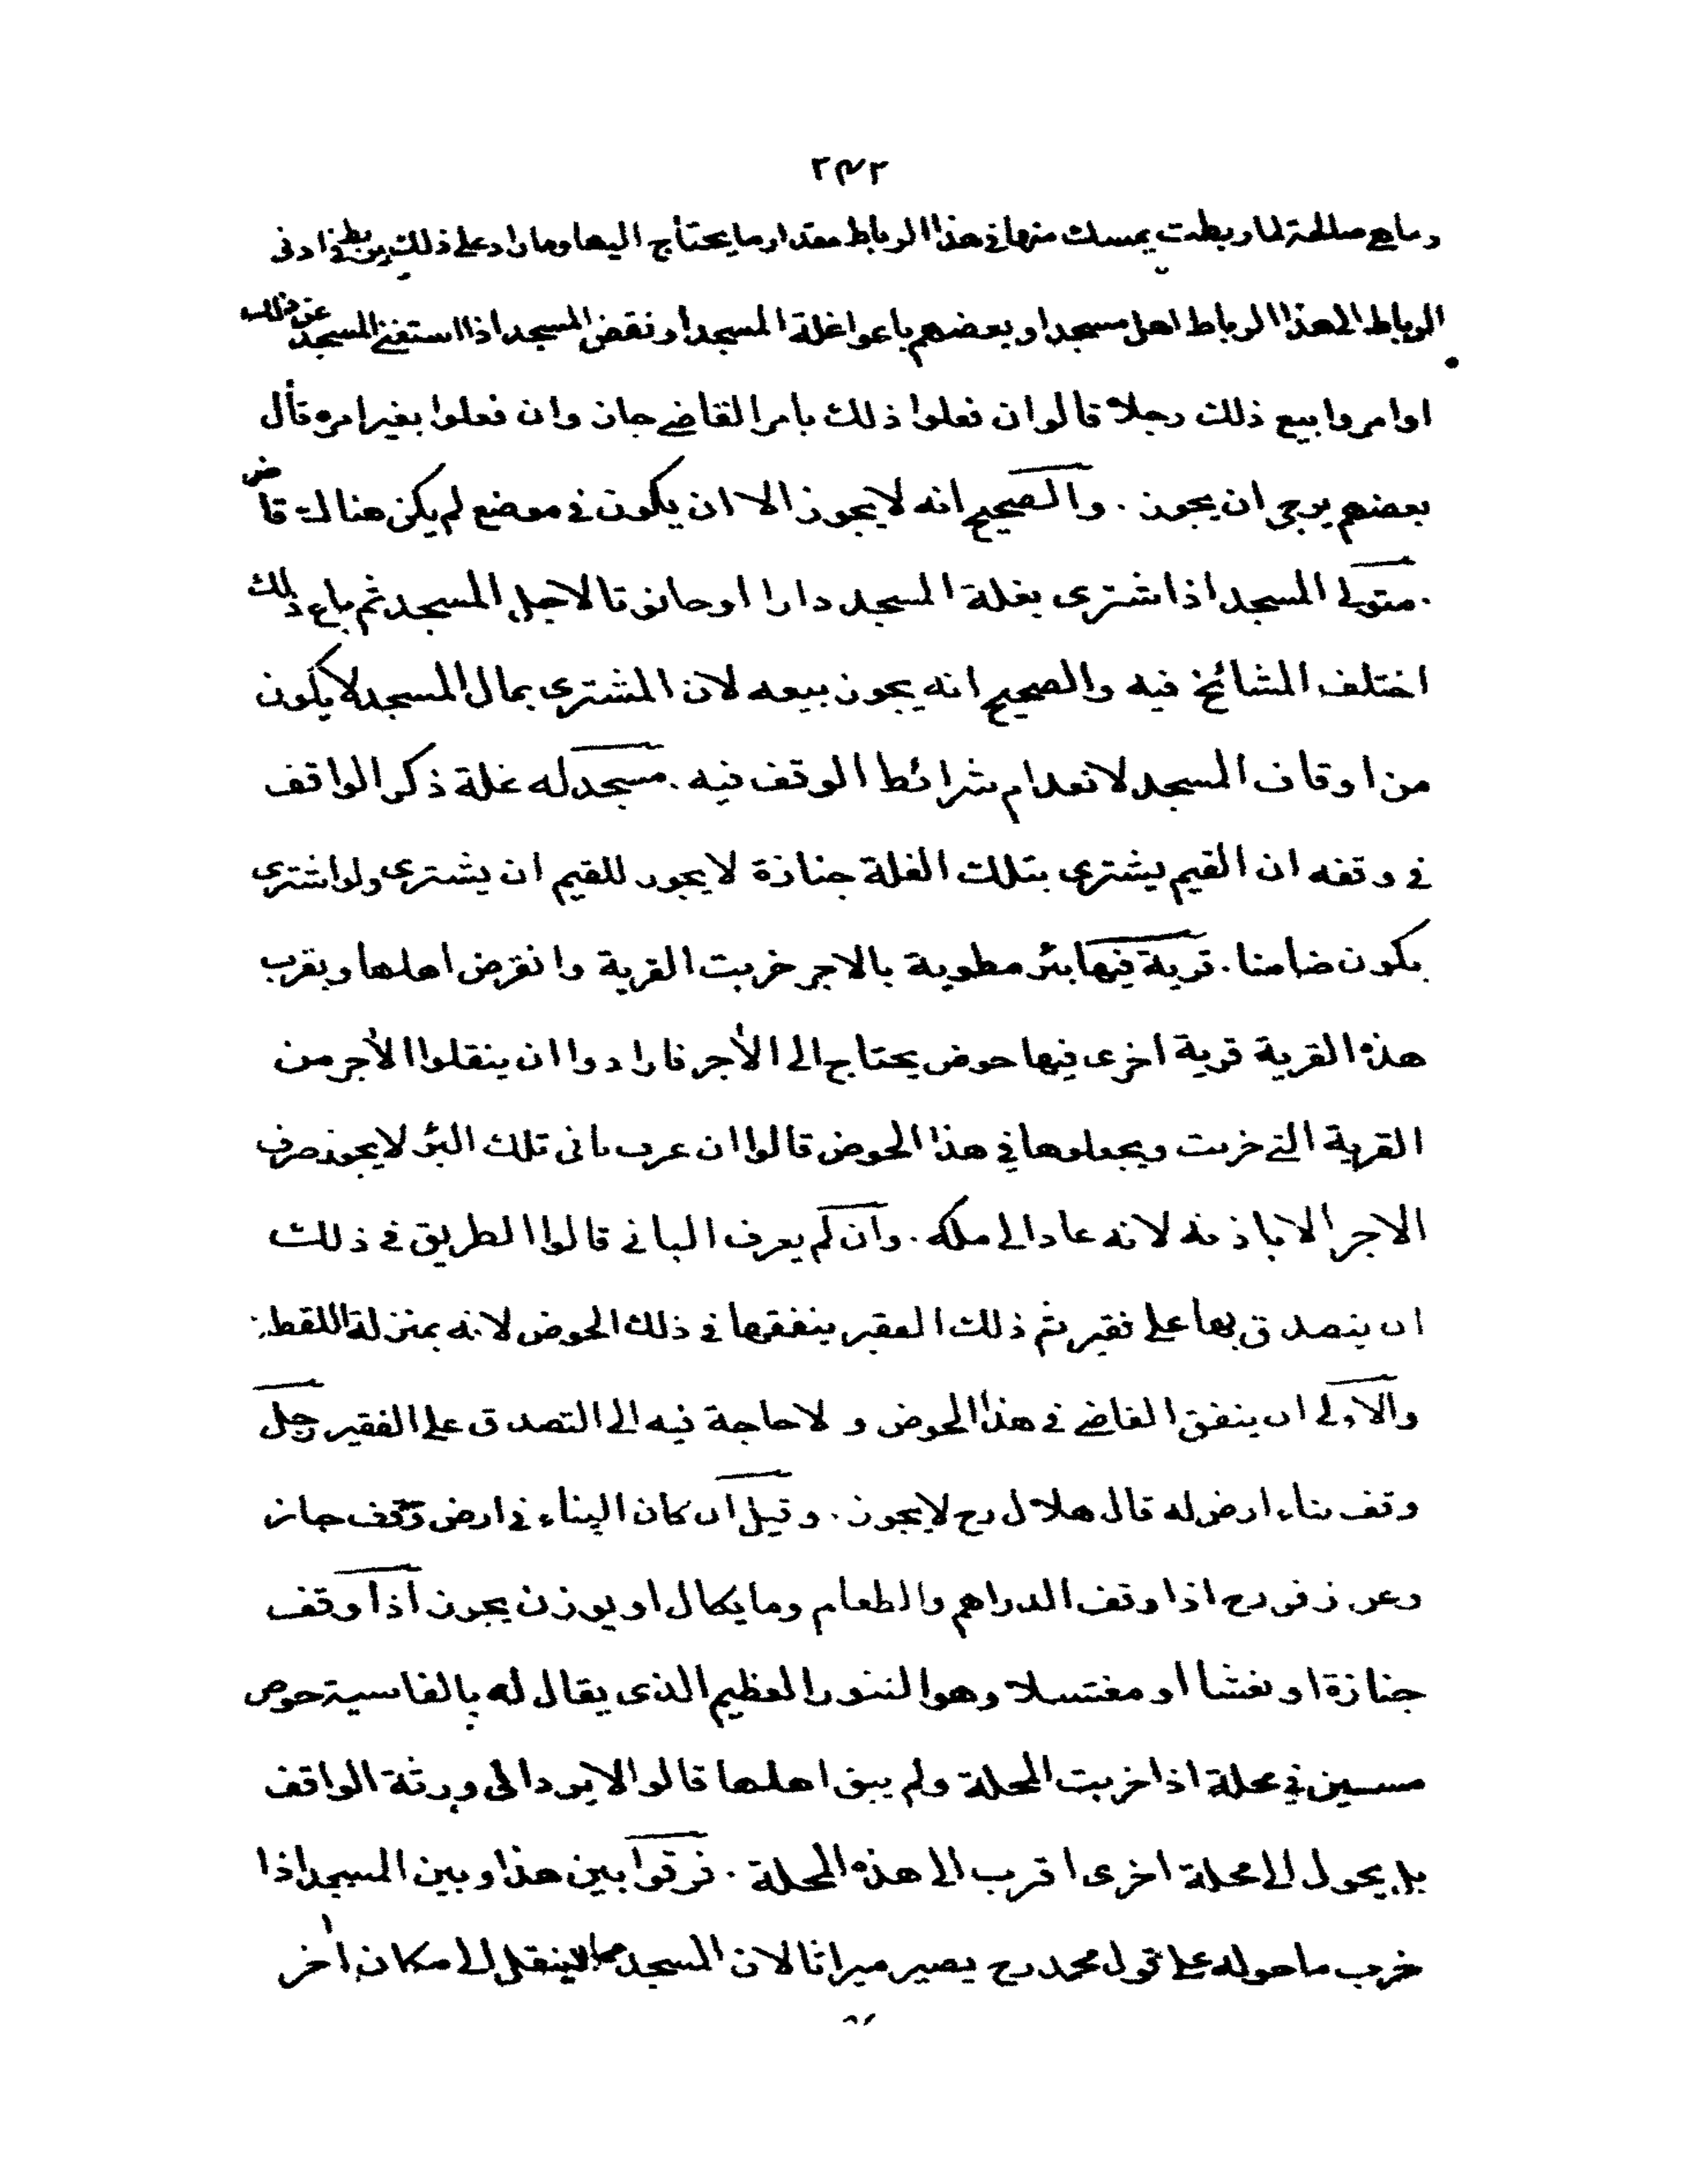 ٢٤٢
وما هي صالحة لما ربطت يمسك منها في هذا الرباط مقدار ما يحتاج اليها وما زاد على ذلك يربط في ادنى
الرباط الى هذا الرباط اهل مسجد او بعضهم باعوا غلة المسجد او نقض المسجد اذا استغنى المسجد عن ذلك
او امروا ببيع ذلك رجلا قالوا ان فعلوا ذلك بامر القاضي جاز وان فعلوا بغير امره قال
بعضهم يرجى ان يجوز . والصحيح انه لا يجوز الا ان يكون في موضع لم يكن هنالك قاض
. متولى المسجد اذا اشترى بغلة المسجد دارا او حانوتا لاجل المسجد ثم باع ذلك
اختلف المشائخ فيه والصحيح انه يجوز بيعه لان المشترى بمال المسجد لا يكون
من اوقاف المسجد لانعدام شرائط الوقف فيه . مسجد له غلة ذكر الواقف
في وقفه ان القيم يشترى بتلك الغلة جنازة لا يجوز للقيم ان يشترى ولو اشترى
يكون ضامنا . قرية فيها بئر مطوية بالاجر خربت القرية وانقرض اهلها وبقرب
هذه القرية قرية اخرى فيها حوض يحتاج الى الأجر فارادوا ان ينقلوا الأجر من
القرية التي خربت ويجعلوها في هذا الحوض قالوا ان عرف بانى تلك البئر لا يجوز صرف
الاجر الا باذنه لانه عاد الى ملكه . وان لم يعرف البانى قالوا الطريق في ذلك
ان يتصدق بها على فقير ثم ذلك الفقير ينفقها في ذلك الحوض لانه بمنزلة اللقطة
والاولى ان ينفق القاضي في هذا الحوض و لا حاجة فيه الى التصدق على الفقير رجل
وقف بناء ارض له قال هلال رح لا يجوز . وقيل ان كان البناء في ارض وقف جاز
وعن زفر رح اذا وقف الدراهم والطعام وما يكال او يوزن يجوز اذا وقف
جنازة او نعشا او مغتسلا وهو التنور العظيم الذى يقال له بالفاسية حوض
مسين في محلة اذا خربت المحلة ولم يبق اهلها قالوا لا يرد الى ورثة الواقف
بل يحول الى محلة اخرى اقرب الى هذه المحلة . فرقوا بين هذا وبين المسجد اذا
خرب ما حوله على قول محمد رح يصير ميراثا لان المسجد مما لا ينقل الى مكان اخر